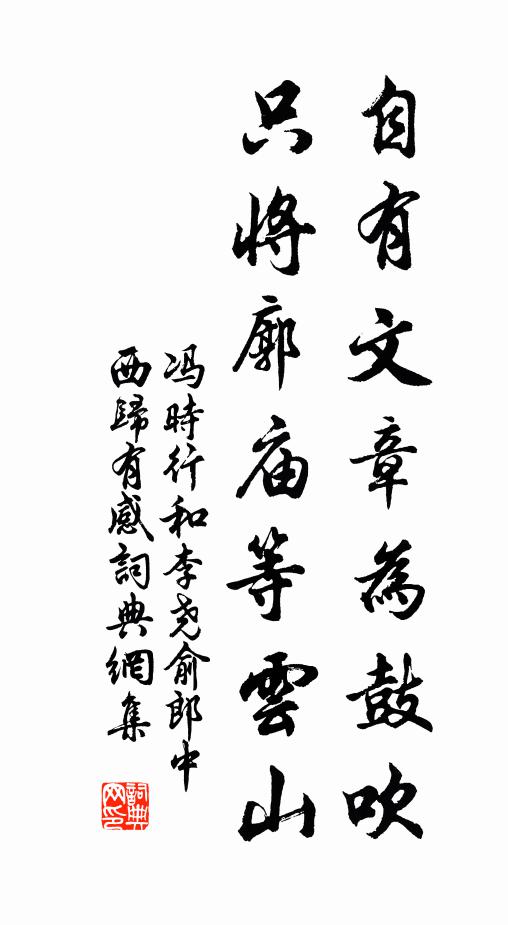 自有文章為鼓吹
只將廓庙等雲山
冯時行和李尧俞郎中
西歸有感詞典網集
詞典网印